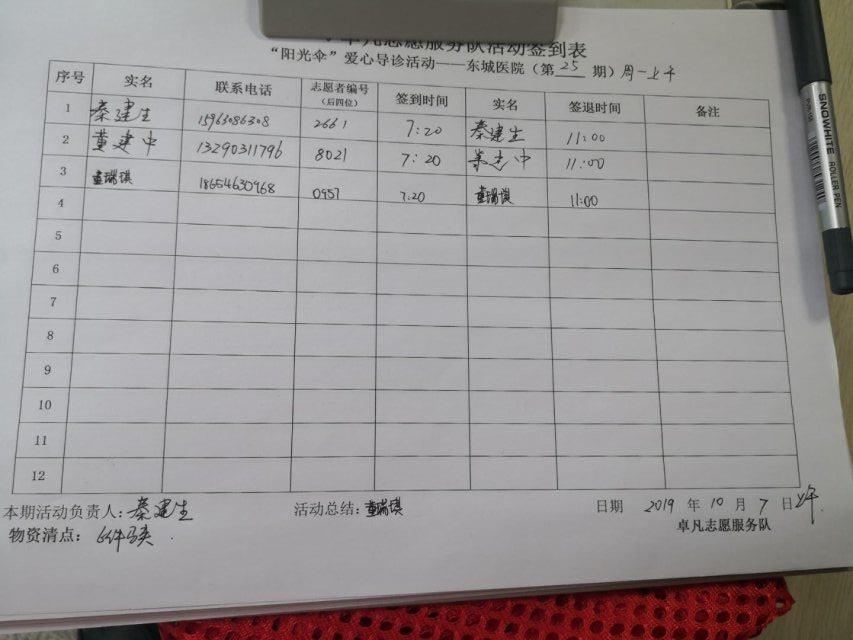 卓凡志愿服务队活动签到表
“阳光伞”爱心导诊活动——东城医院（第25期）周一上午
序号 实名 联系电话 志愿者编号（后四位） 签到时间 实名 签退时间 备注
1 秦建生 15963086308 2661 7:20 秦建生 11:00
2 董建中 13290311796 8021 7:20 11:00
3 董瑞琪 18654630968 0957 7:20 董瑞琪 11:00
4
5
6
7
8
9
10
11
12
本期活动负责人：秦建生 活动总结：董瑞琪 日期 2019 年 10 月 7 日上午
物资清点： 卓凡志愿服务队
SNOWHITE ROLLER PEN